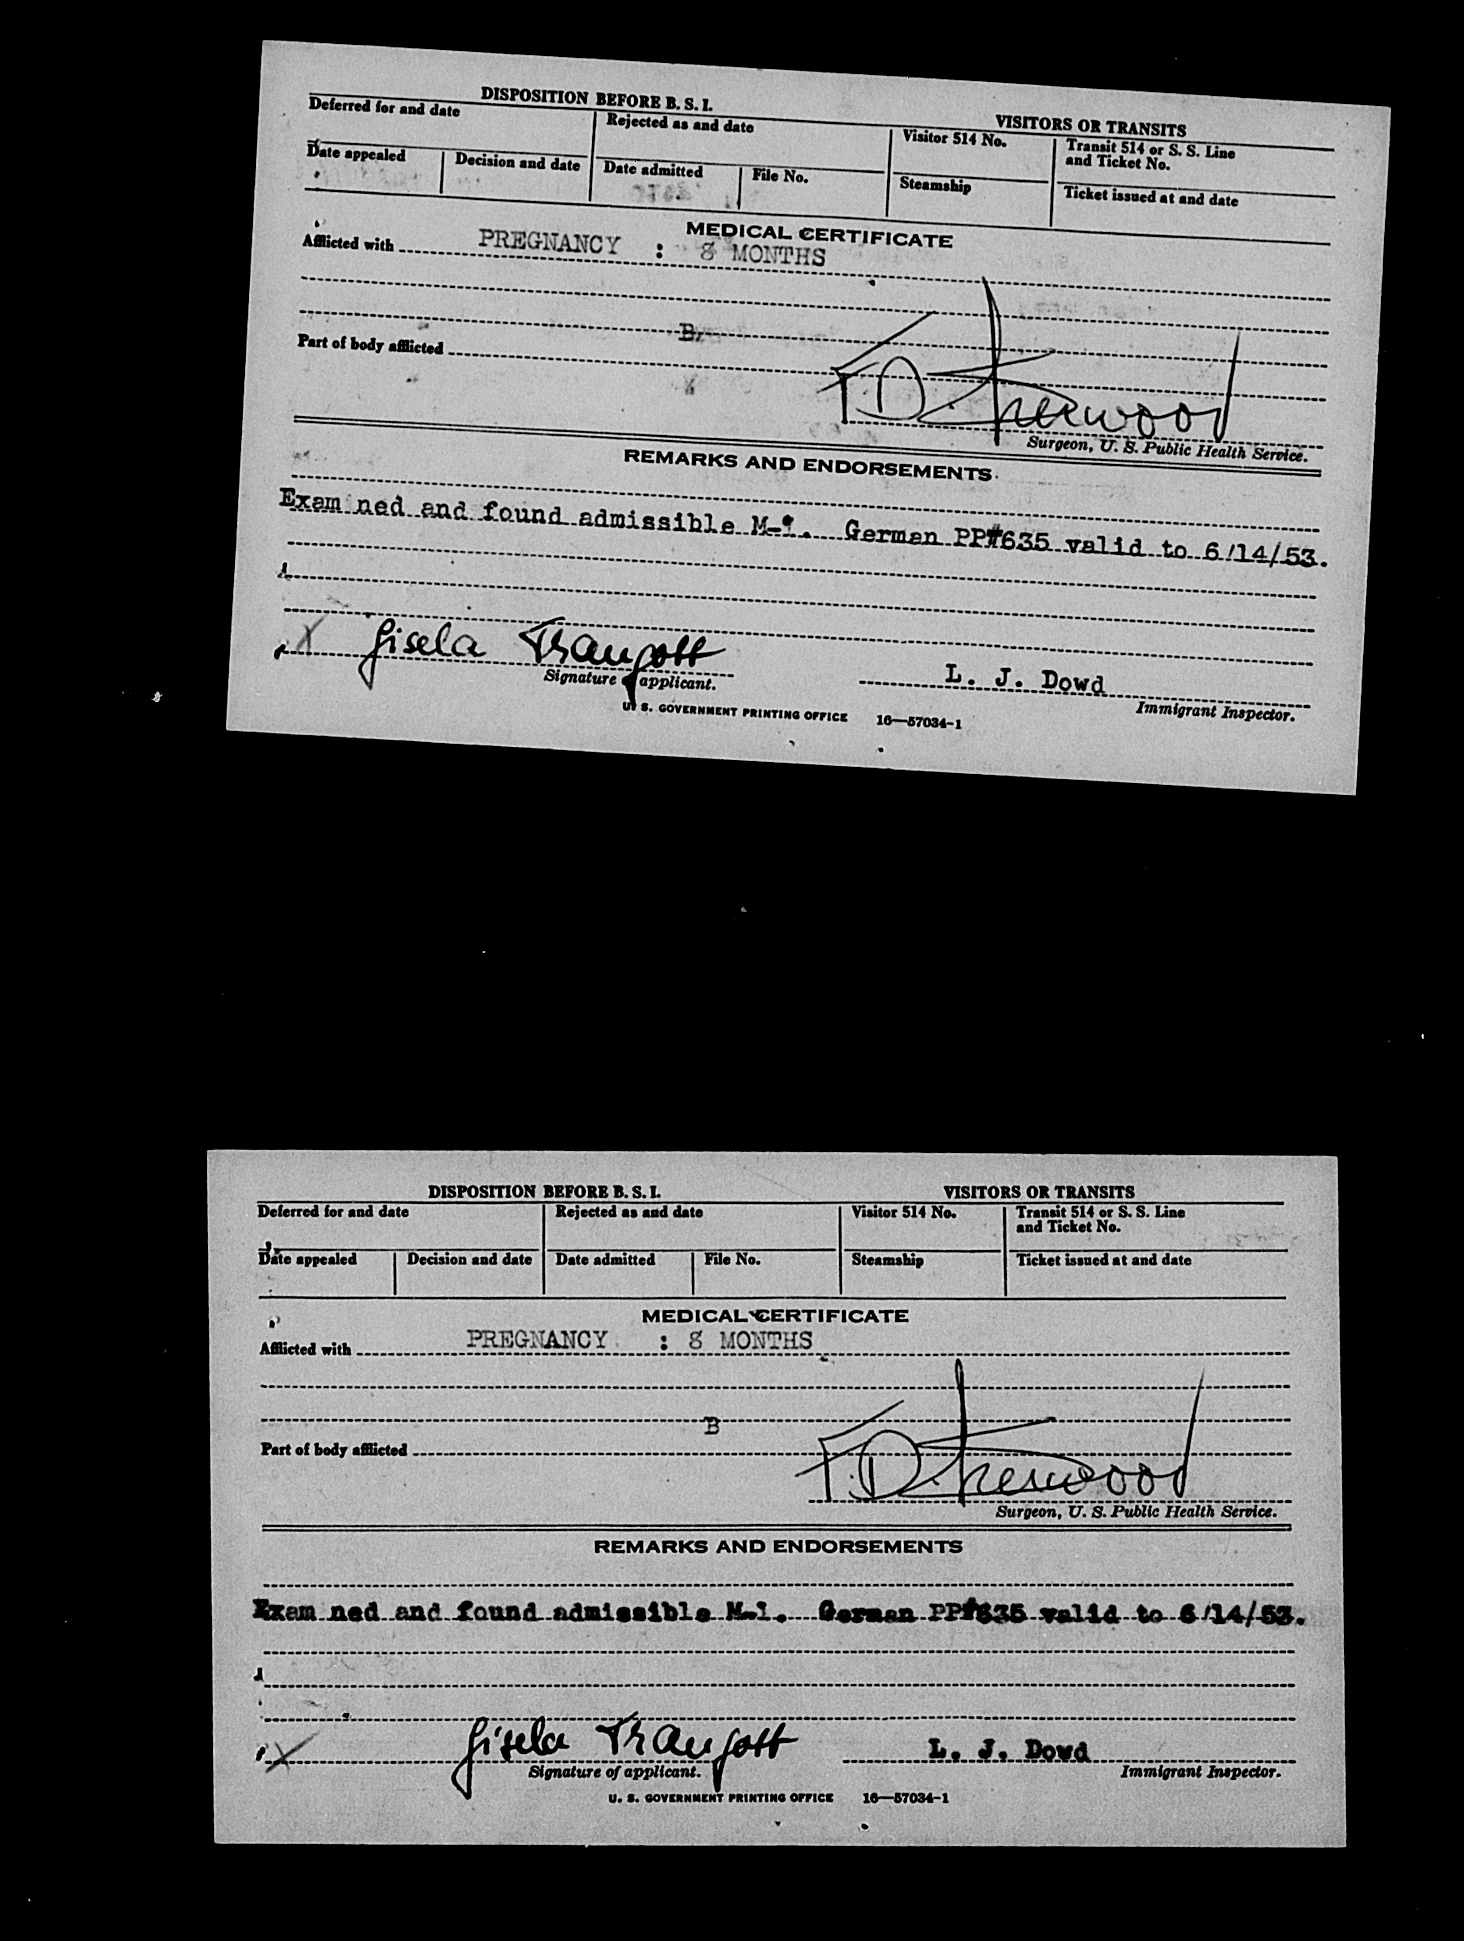 DISPOSITION BEFORE B. S. I.
VISITORS OR TRANSITS
Deferred for and date
Rejected as and date
Visitor 514 No.
Transit 514 or S. S. Line
and Ticket No.
Date appealed
Decision and date
Date admitted
File No.
Steamship
Ticket issued at and date
MEDICAL CERTIFICATE
Afflicted with PREGNANCY : 8 MONTHS
B
Part of body afflicted
F. D. Sherwood
Surgeon, U. S. Public Health Service.
REMARKS AND ENDORSEMENTS
Exam ned and found admissible M-1. German PP#635 valid to 6/14/53.
X Gisela Traugott
L. J. Dowd
Signature applicant.
Immigrant Inspector.
U. S. GOVERNMENT PRINTING OFFICE 16—57034-1
DISPOSITION BEFORE B. S. I.
VISITORS OR TRANSITS
Deferred for and date
Rejected as and date
Visitor 514 No.
Transit 514 or S. S. Line
and Ticket No.
Date appealed
Decision and date
Date admitted
File No.
Steamship
Ticket issued at and date
MEDICAL CERTIFICATE
Afflicted with PREGNANCY : 8 MONTHS
B
Part of body afflicted
F. D. Sherwood
Surgeon, U. S. Public Health Service.
REMARKS AND ENDORSEMENTS
Exam ned and found admissible M-1. German PP#635 valid to 6/14/53.
X Gisela Traugott
L. J. Dowd
Signature of applicant.
Immigrant Inspector.
U. S. GOVERNMENT PRINTING OFFICE 16—57034-1